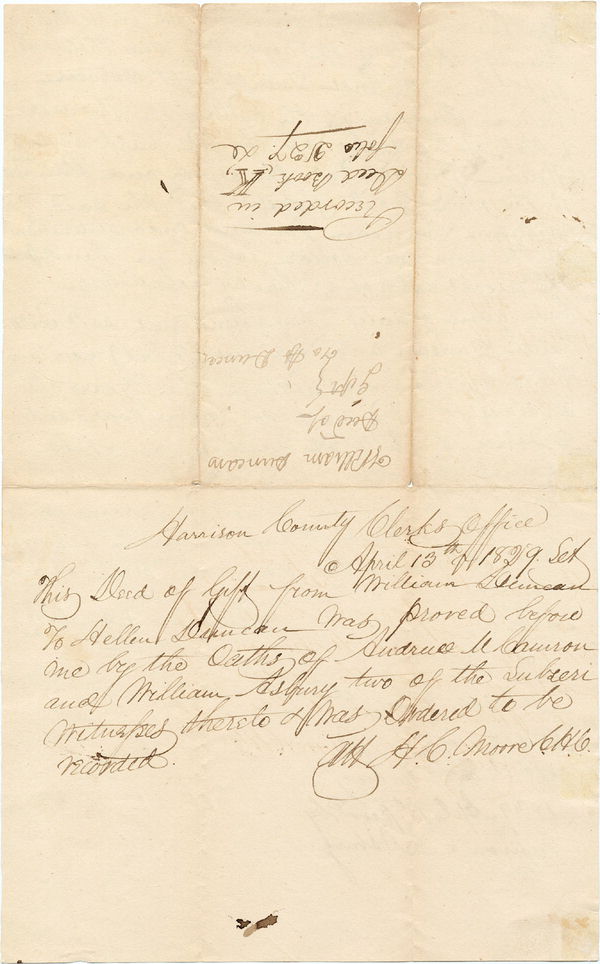 Recorded in
Deed Book,
folio 212
William Duncans
Deed of
Gift
To H Duncan
Harrison County Clerks Office
April 13th 1829. Sct
This Deed of Gift from William Duncan
To Hellen Duncan was proved before
me by the Oaths of Andrew M Camron
and William Asbury two of the Subscri
Witnesses thereto & was Ordered to be
recorded.
Att H. C. Moore C.H.C.